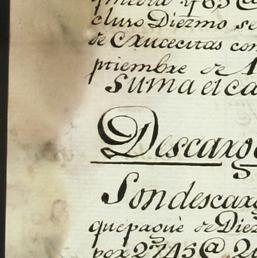 cluso Diezmo se
de Cxucecitas con
ptiembre de 1
Suma el ca
Descarg
Son descarg
que pagùe de Diez
por 2745@ 20